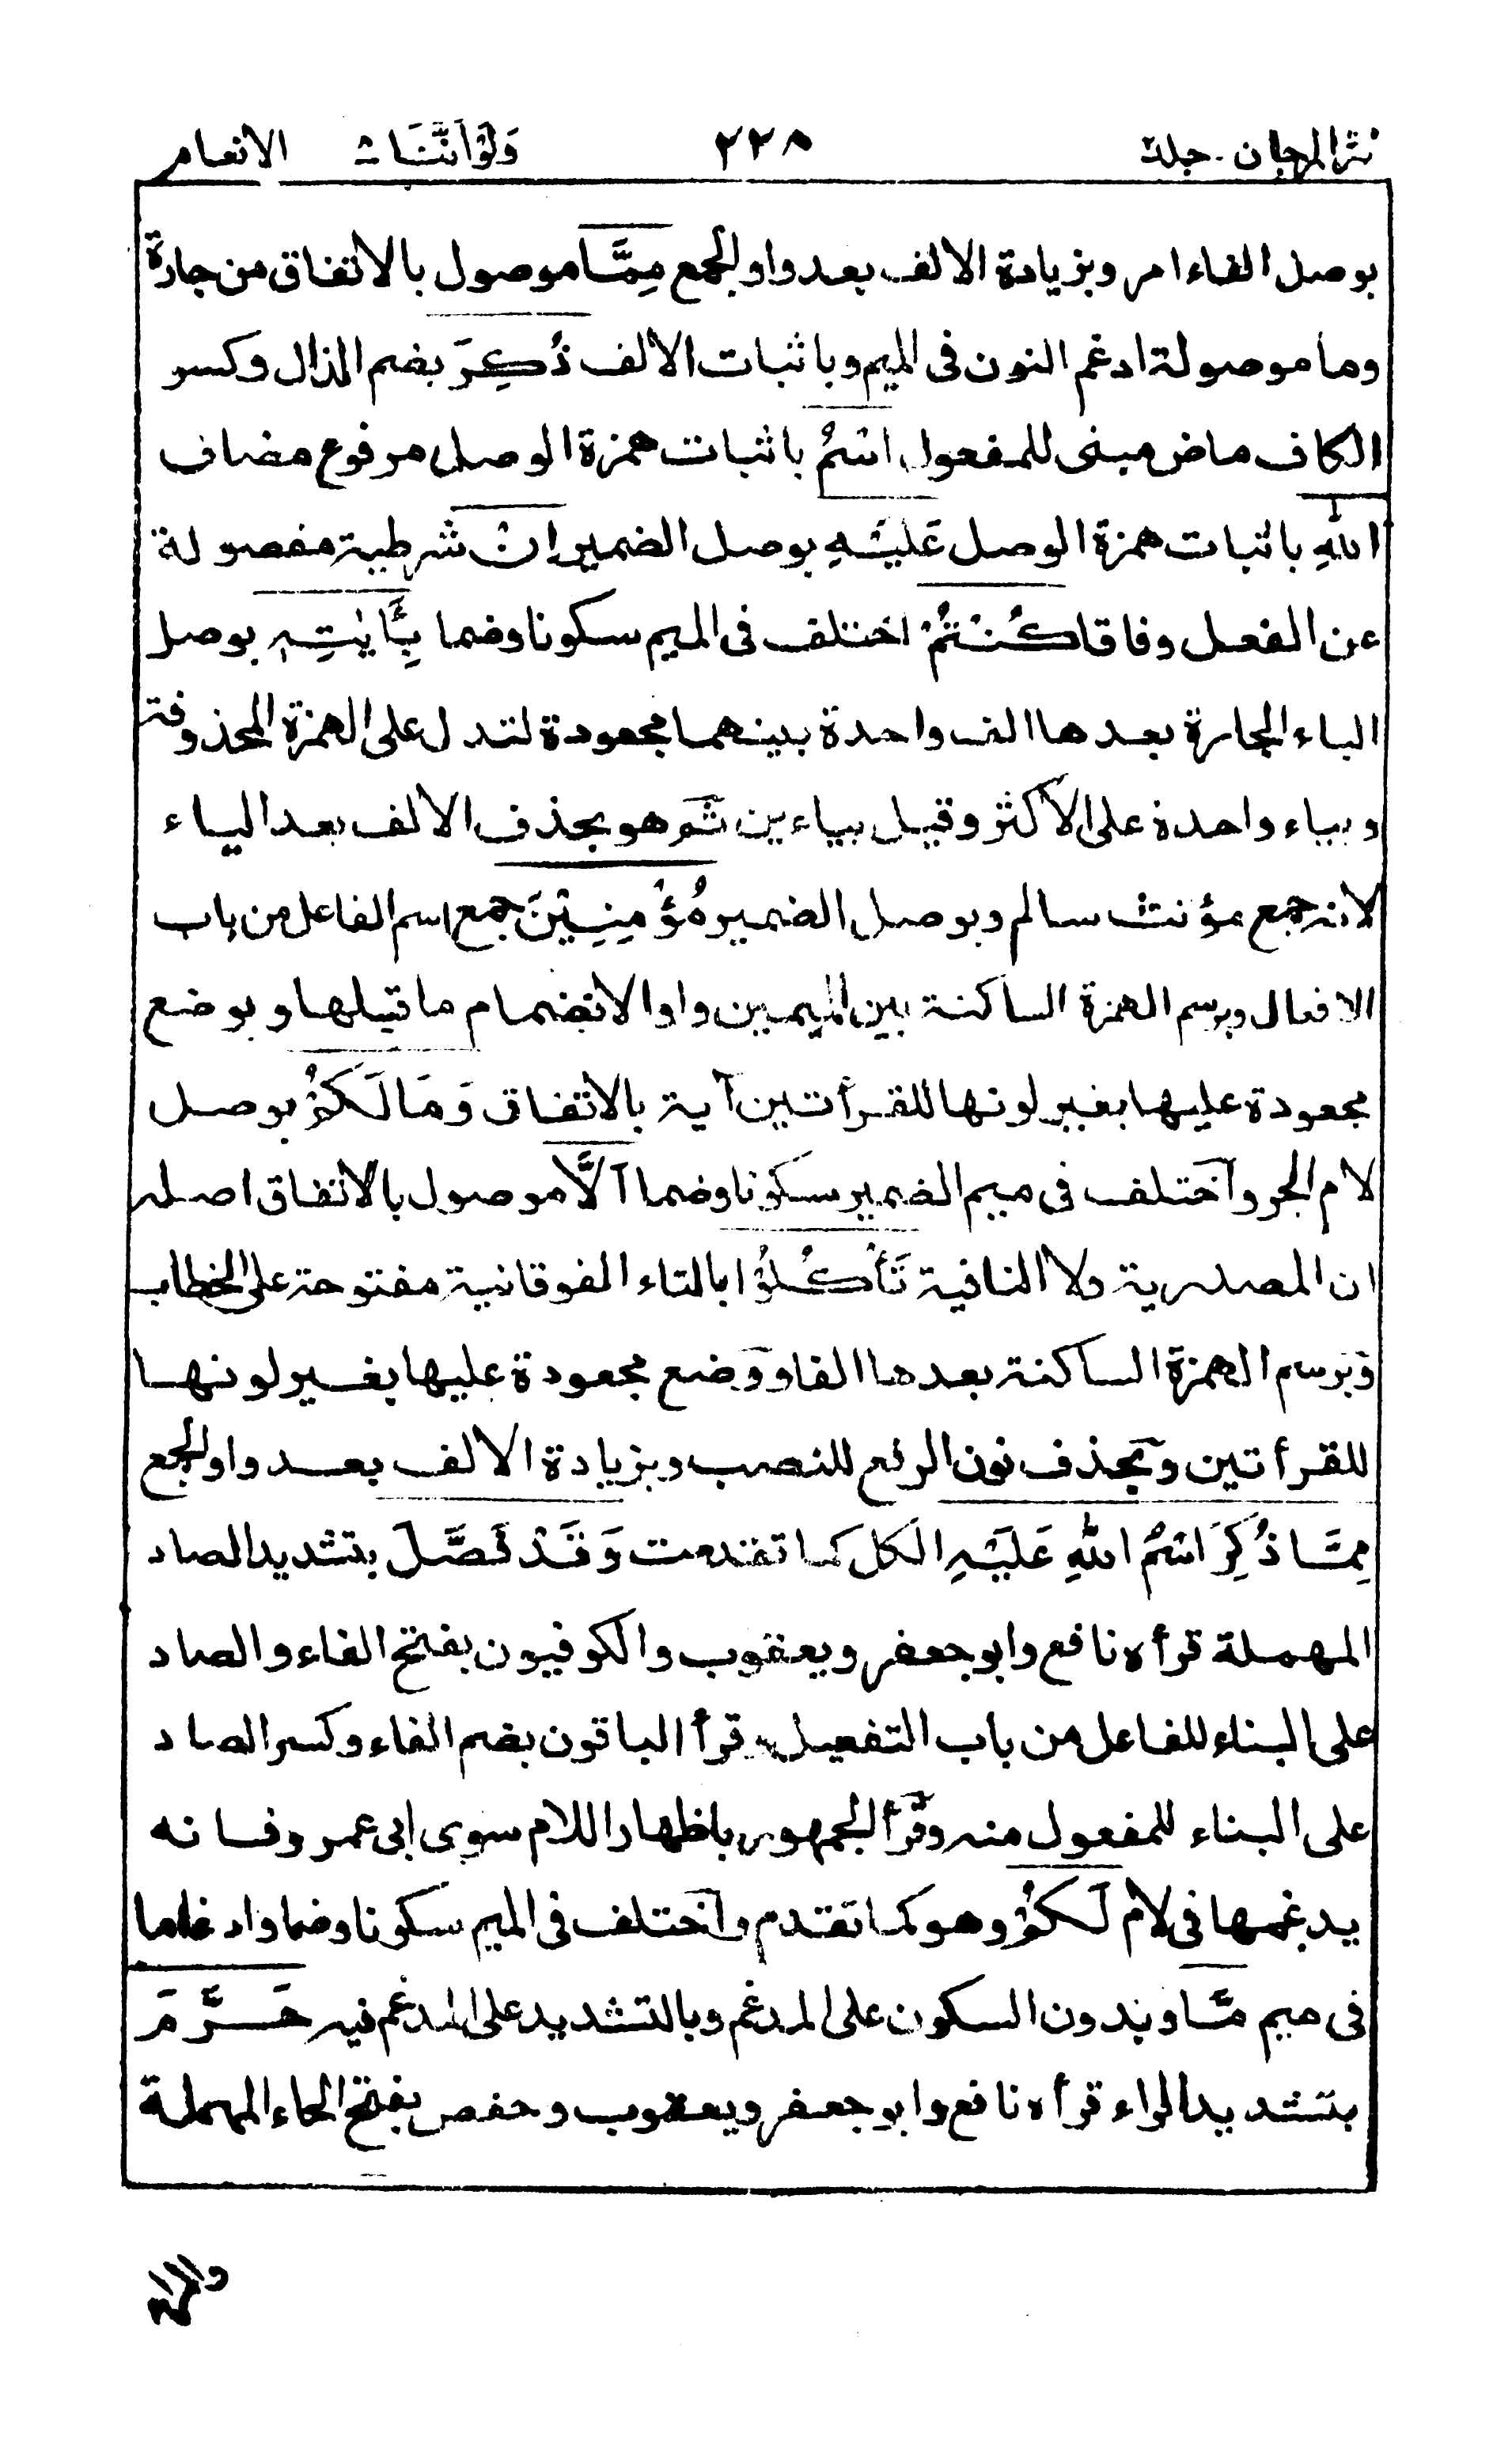 نثر المرجان - جلد ٢٢٨ وَلَوْ اَنَّنَا ث الانعام
بوصل الفاء امر وبزيادة الالف بعد واو الجمع مِمَّا موصول بالاتفاق من جارة
وما موصولة ادغم النون فى الميم وباثبات الالف ذُكِرَ بضم الذال وكسر
الكاف ماض مبنى للمفعول اسْمُ باثبات همزة الوصل مرفوع مضاف
اللهِ باثبات همزة الوصل عَلَيْهِ بوصل الضمير اِنْ شرطية مفصولة
عن الفعل وفاقا كُنْتُمْ اختلف فى الميم سكونا وضما بِاٰيٰتِهٖ بوصل
الباء الجارة بعدها الف واحدة بينهما مجعودة لتدل على الهمزة المحذوفة
وبياء واحدة على الاكثر وقيل بياءين ثم هو بحذف الالف بعد الياء
لانه جمع مؤنث سالم وبوصل الضمير مُؤْمِنِيْنَ جمع اسم الفاعل من باب
الافعال وبرسم الهمزة الساكنة بين الميمين واوا لانضمام ما قبلها وبوضع
مجعودة عليها بغير لونها للقرأتين آية بالاتفاق وَمَا لَكُمْ بوصل
لام الجر واختلف فى ميم الضمير سكونا وضما اَلَّا موصول بالاتفاق اصله
ان المصدرية ولا النافية تَأْكُلُوْا بالتاء الفوقانية مفتوحة على الخطاب
وبرسم الهمزة الساكنة بعدها الفا ووضع مجعودة عليها بغير لونها
للقرأتين وبحذف نون الرفع للنصب وبزيادة الالف بعد واو الجمع
مِمَّا ذُكِرَ اسْمُ اللهِ عَلَيْهِ الكل كما تقدمت وَقَدْ فَصَّلَ بتشديد الصاد
المهملة قرأه نافع وابو جعفر ويعقوب والكوفيون بفتح الفاء والصاد
على البناء للفاعل من باب التفعيل وقرأ الباقون بضم الفاء وكسر الصاد
على البناء للمفعول منه وقرأ الجمهور باظهار اللام سوى ابى عمرو فانه
يدغمها فى لام لَكُمْ وهو كما تقدم واختلف فى الميم سكونا وضما وادغاما
فى ميم مَّا وبدون السكون على المدغم وبالتشديد على المدغم فيه حَرَّمَ
بتشديد الراء قرأه نافع وابو جعفر ويعقوب وحفص بفتح الحاء المهملة